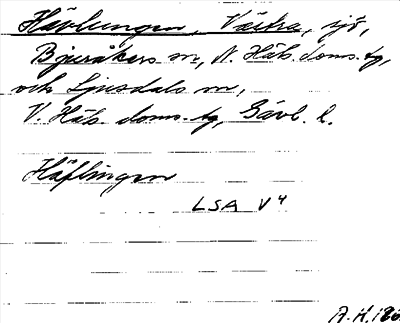 Hävlungen, Västra, sjö,
Bjuråkers sn, N. Häls. doms.tg,
och Ljusdals sn,
V. Häls. doms.tg, Gävl. l.
Häflingen
LSA V4